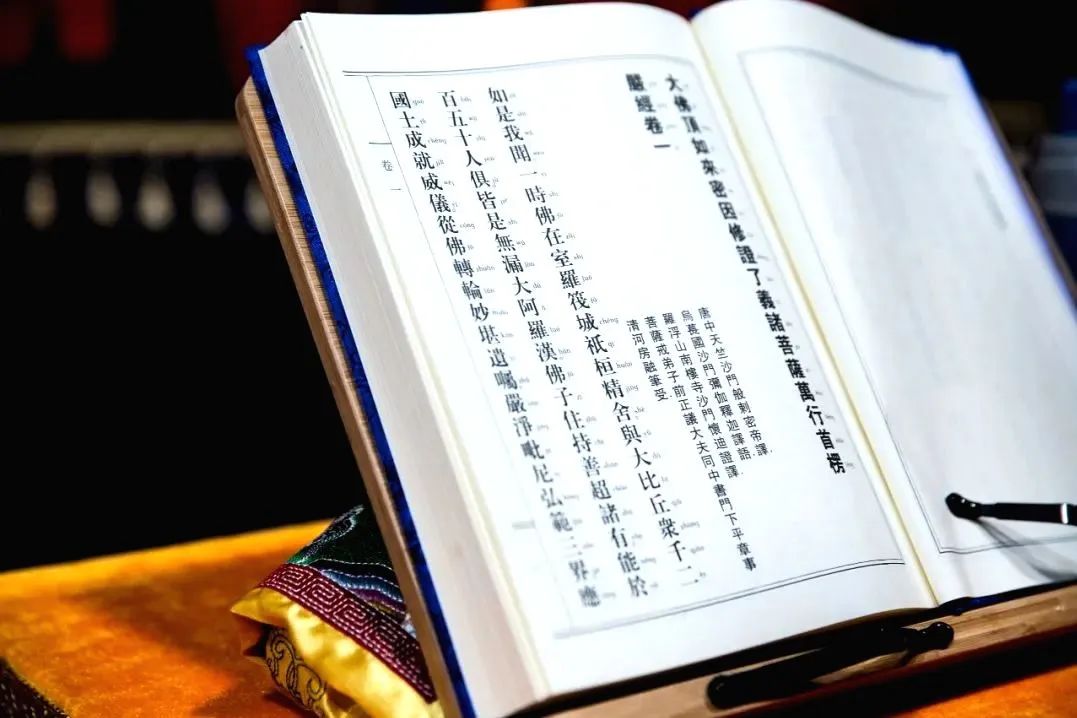 大佛頂如來密因修證了義諸菩薩萬行首楞
嚴經卷一
唐中天竺沙門般剌密帝譯.
烏萇國沙門彌伽釋迦譯語.
羅浮山南樓寺沙門懷迪證譯.
菩薩戒弟子前正議大夫同中書門下平章事
清河房融筆受.
如是我聞一時佛在室羅筏城祇桓精舍與大比丘衆千二
百五十人俱皆是無漏大阿羅漢佛子住持善超諸有能於
國土成就威儀從佛轉輪妙堪遺囑嚴淨毗尼弘範三界應
卷一